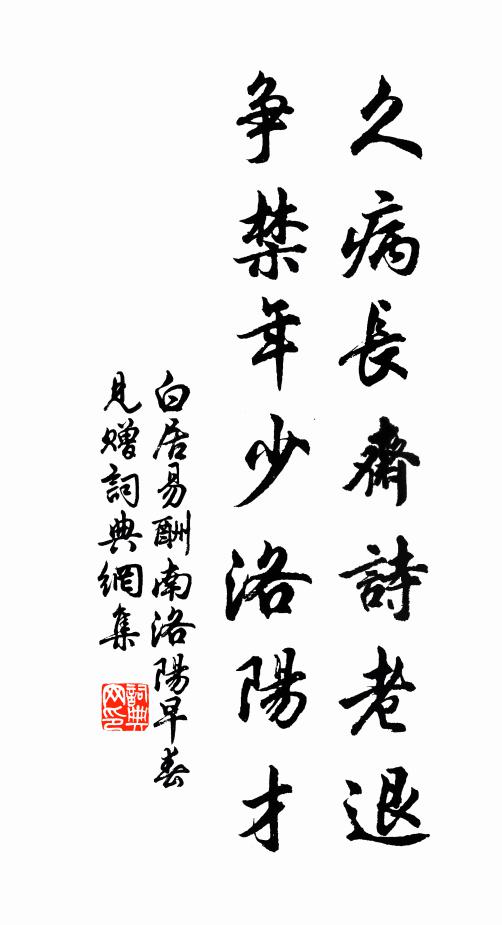 久病長齋詩老退
爭禁年少洛陽才
白居易酬南洛陽早春
見贈詞典網集
詞典
网印